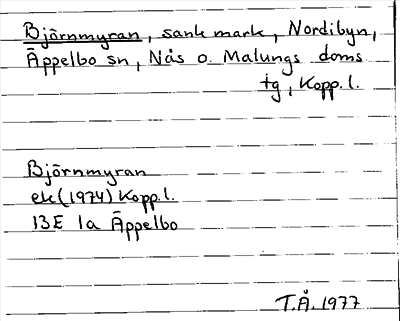 Björnmyran, sank mark, Nordibyn,
Äppelbo sn, Nås o. Malungs doms
tg, Kopp. l.
Björnmyran
ek (1974) Kopp. l.
13E 1a Äppelbo
T.Å. 1977